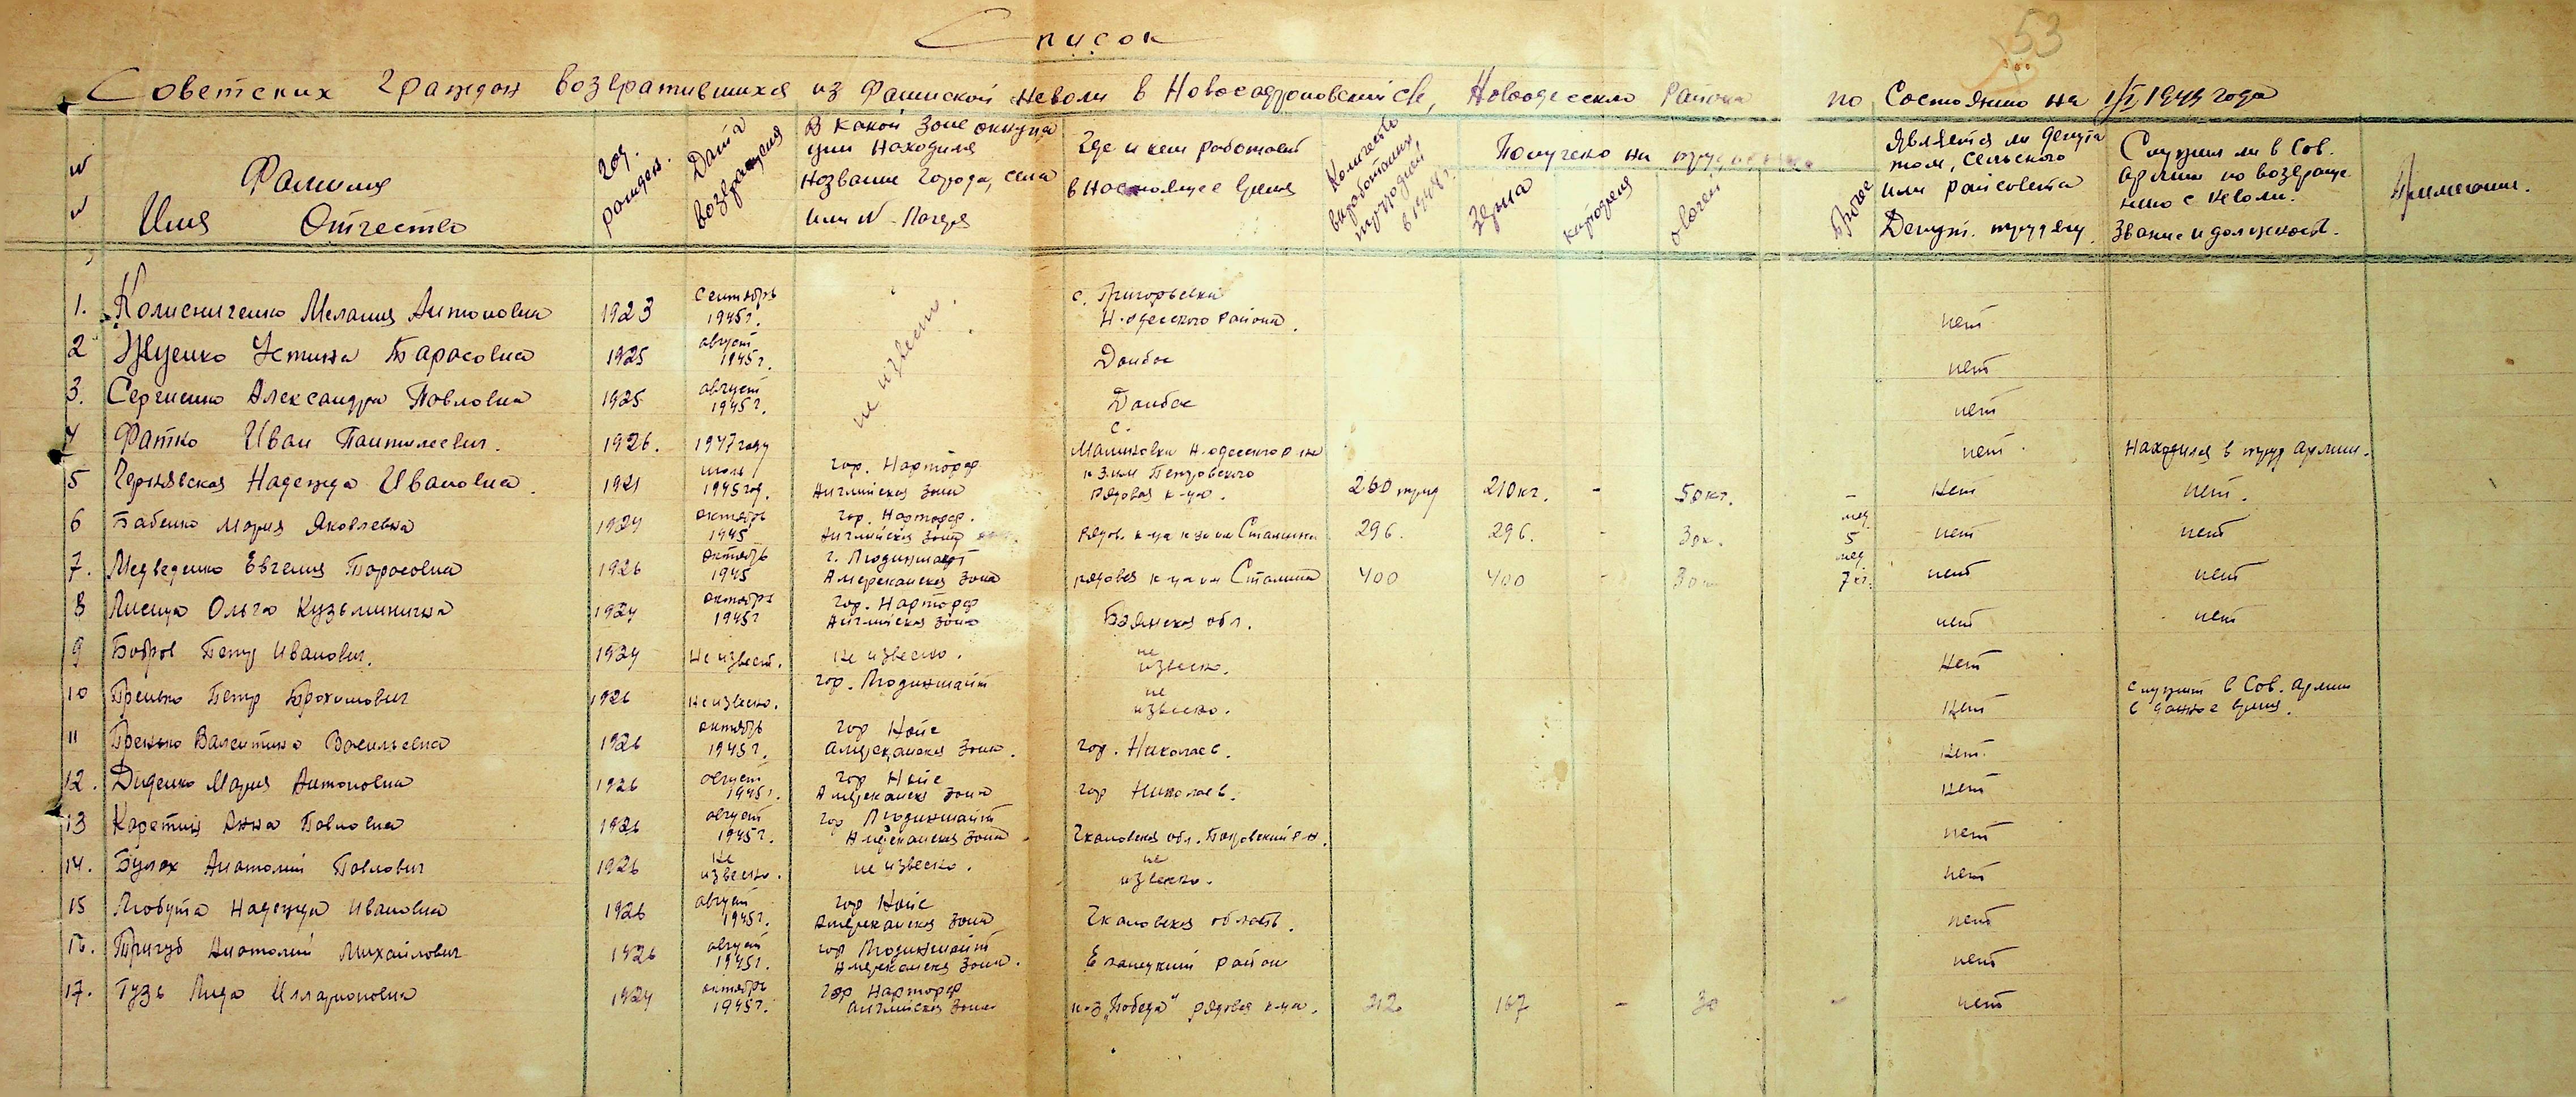 Список
53
Советских Граждан возвратившихся из Фашиской Неволи в Новосафроновский с/с, Новоодесского Района по Состоянию на 1/I 1949 года
№ № Фамилия Имя Отчество
Год рожден.
Дата возвращения
В какой Зоне оккупации Находился Название Города, села или № Лагеря
Где и кем работает в Настоящее Время
Количество выработаных трудодней в 1948 г.
Получено на
зерна
картофеля
овощей
прочее
Является ли депутатом, Сельского или райсовета Депут. трудящ.
Служил ли в Сов. Армии по возвращению с Неволи. Звание и должность.
Примечание.
1. Колисниченко Мелания Антоновна 1923 сентябрь 1945 г. не извест. с. Григорьевка Н-одесского района. нет
2 Жученко Устинья Тарасовна 1925 август 1945 г. Донбас нет
3. Сергиенко Александра Павловна 1925 август 1945 г. Донбас нет
4 Фатко Иван Пантилеевич. 1926. 1947 году с. Малиновка Н-одесского р-на нет Находился в труд армии.
5 Чернявская Надежда Ивановна. 1921 июль 1945 год. гор. Нарторф Английская Зона к-з им Петровского рядовая к-ца. 260 труд 210 кг. - 50 кг. - Нет нет.
6 Бабенко Мария Яковлевна 1924 октябрь 1945 гор. Нарторф. Английская Зона рядов. к-ца к-з им Сталина 296. 296. - 30 к. мед 5 нет нет
7. Медведенко Евгения Тарасовна 1926 октябрь 1945 г. Людинштат Американская Зона рядовая к-ца им Сталина 400 400 - 30 мед 7 кг. нет нет
8 Лисица Ольга Кузьминична 1924 октябрь 1945 г гор. Нарторф Английская Зона Брянская обл. нет нет
9 Бобров Петр Иванович. 1924 Не извест. Не извесно. не извесно. Нет
10 Пренько Петр Прохорович 1926 Не извесно. гор. Людинштайт не извесно. Нет Служит в Сов. Армии в данное время.
11 Пренько Валентина Васильевна 1926 октябрь 1945 г. гор Нойс Американская Зона. гор. Николаев. Нет.
12. Диденко Мария Антоновна 1926 август 1945 г. гор Нойс Американская Зона гор Николаев. Нет
13 Каретник Анна Павловна 1926 август 1945 г. гор Людинштайт Американская Зона Чкаловская обл. Покровский р-н. нет
14. Булах Анатолий Павлович 1926 Не извесно. не извесно. не извесно. нет
15 Любута Надежда Ивановна 1926 август 1945 г. гор Нойс Американская Зона Чкаловская область. нет
16. Тригуб Анатолий Михайлович 1926 август 1945 г. гор Людинштайт Американская Зона. Еланецкий район нет
17. Гузь Лида Илларионовна 1924 октябрь 1945 г. гор Нарторф Английская Зона к-з „Победа" рядовая к-ца. 312 167 - 30 - нет